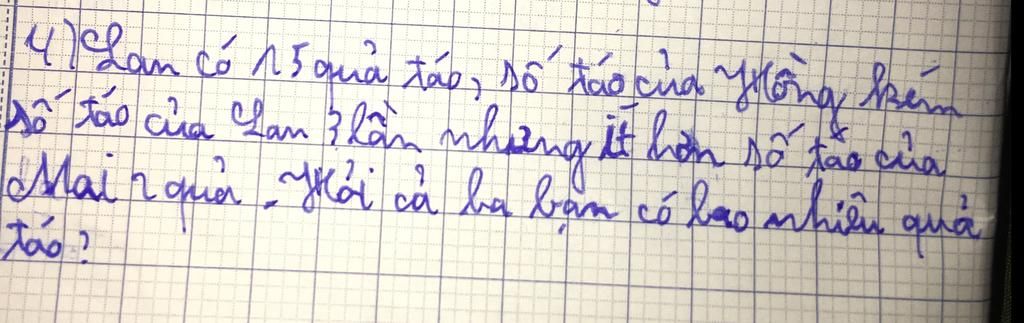 4) Lan có 15 quả táo, số táo của Hồng kém
số táo của Lan 3 lần nhưng ít hơn số táo của
Mai 2 quả. Hỏi cả ba bạn có bao nhiêu quả
táo?